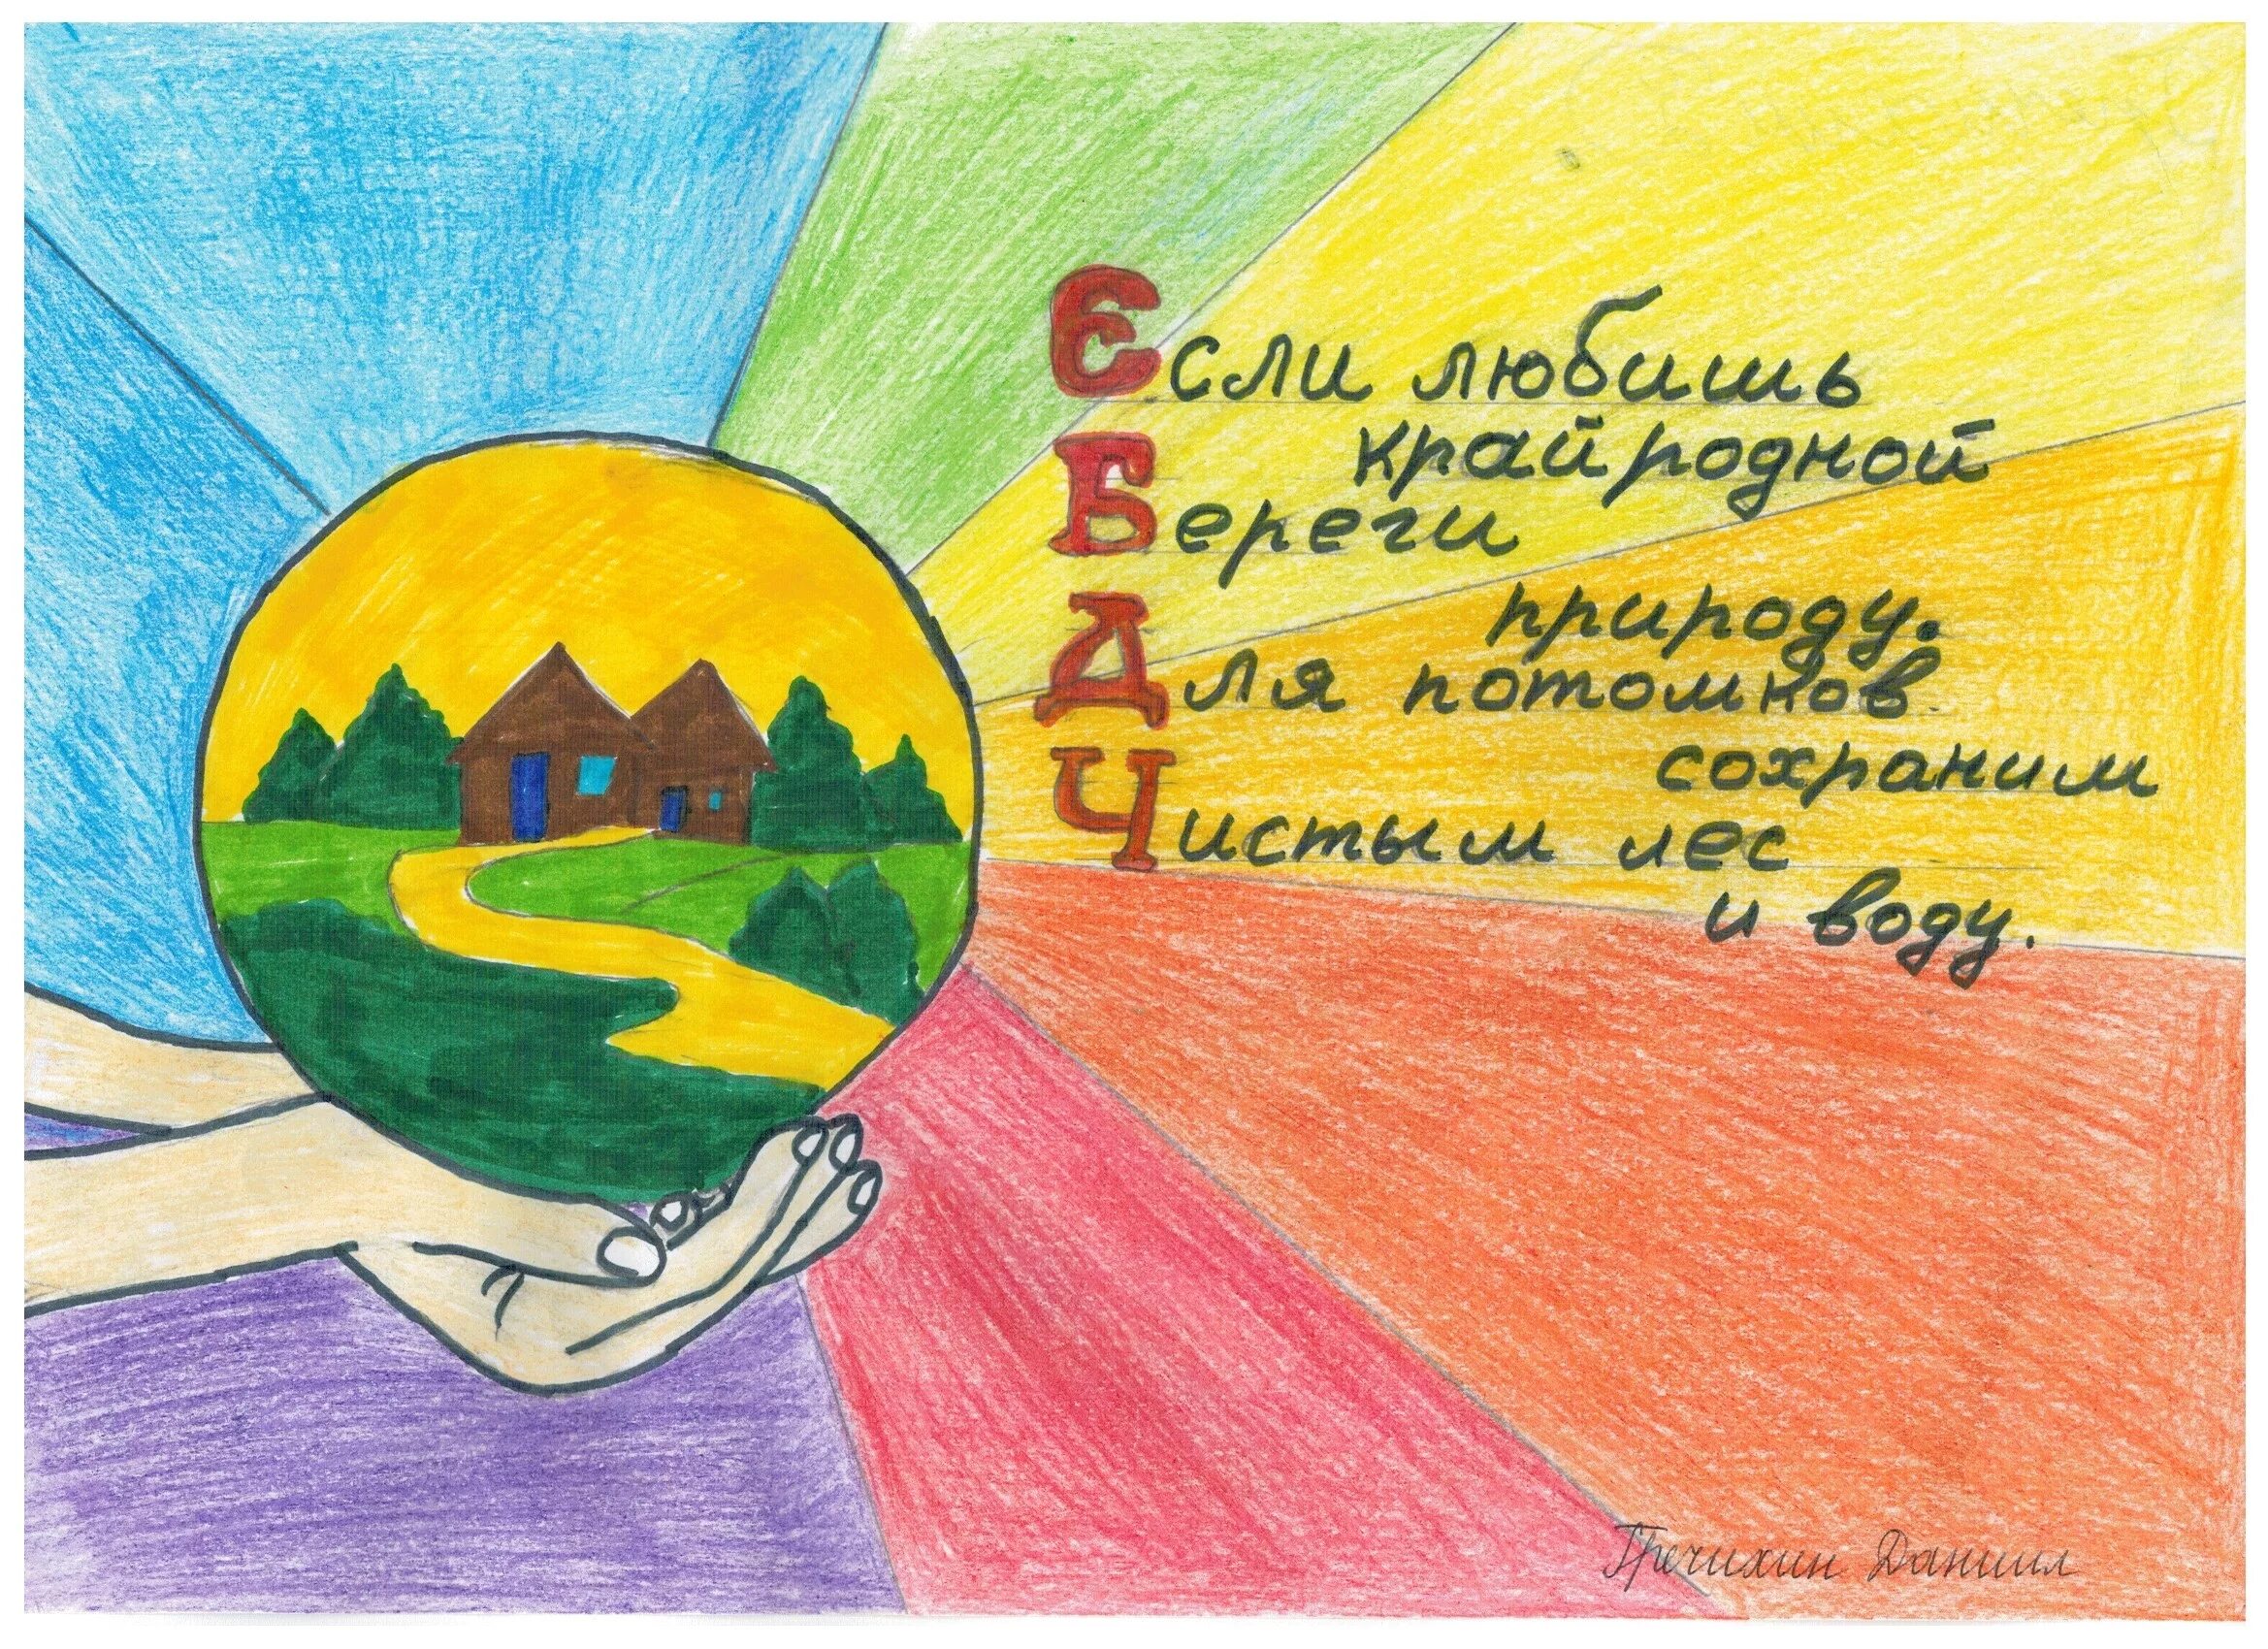 Если любишь
край родной
Береги
природу.
Для потомков
сохраним
Чистым лес
и воду.
Гречихин Даниил